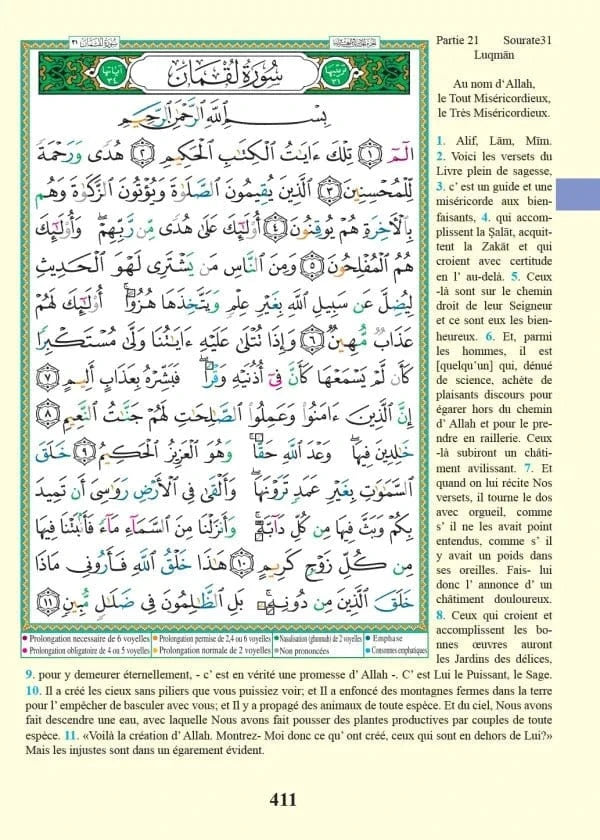 Partie 21 Sourate31
Luqmān
سُورَةُ لُقْمَان ٣١
الجزء الحادي والعشرون
ترتيبها ٣١
سُورَةُ لُقْمَان
آياتها ٣٤
بِسْمِ ٱللَّهِ ٱلرَّحْمَٰنِ ٱلرَّحِيمِ
الٓمٓ ١ تِلْكَ ءَايَٰتُ ٱلْكِتَٰبِ ٱلْحَكِيمِ ٢ هُدًى وَرَحْمَةً
لِّلْمُحْسِنِينَ ٣ ٱلَّذِينَ يُقِيمُونَ ٱلصَّلَوٰةَ وَيُؤْتُونَ ٱلزَّكَوٰةَ وَهُم
بِٱلْءَاخِرَةِ هُمْ يُوقِنُونَ ٤ أُو۟لَٰٓئِكَ عَلَىٰ هُدًى مِّن رَّبِّهِمْ ۖ وَأُو۟لَٰٓئِكَ
هُمُ ٱلْمُفْلِحُونَ ٥ وَمِنَ ٱلنَّاسِ مَن يَشْتَرِى لَهْوَ ٱلْحَدِيثِ
لِيُضِلَّ عَن سَبِيلِ ٱللَّهِ بِغَيْرِ عِلْمٍ وَيَتَّخِذَهَا هُزُوًا ۚ أُو۟لَٰٓئِكَ لَهُمْ
عَذَابٌ مُّهِينٌ ٦ وَإِذَا تُتْلَىٰ عَلَيْهِ ءَايَٰتُنَا وَلَّىٰ مُسْتَكْبِرًا
كَأَن لَّمْ يَسْمَعْهَا كَأَنَّ فِىٓ أُذُنَيْهِ وَقْرًا ۖ فَبَشِّرْهُ بِعَذَابٍ أَلِيمٍ ٧
إِنَّ ٱلَّذِينَ ءَامَنُوا۟ وَعَمِلُوا۟ ٱلصَّٰلِحَٰتِ لَهُمْ جَنَّٰتُ ٱلنَّعِيمِ ٨
خَٰلِدِينَ فِيهَا ۖ وَعْدَ ٱللَّهِ حَقًّا ۚ وَهُوَ ٱلْعَزِيزُ ٱلْحَكِيمُ ٩ خَلَقَ
ٱلسَّمَٰوَٰتِ بِغَيْرِ عَمَدٍ تَرَوْنَهَا ۖ وَأَلْقَىٰ فِى ٱلْأَرْضِ رَوَٰسِىَ أَن تَمِيدَ
بِكُمْ وَبَثَّ فِيهَا مِن كُلِّ دَآبَّةٍ ۚ وَأَنزَلْنَا مِنَ ٱلسَّمَآءِ مَآءً فَأَنۢبَتْنَا فِيهَا
مِن كُلِّ زَوْجٍ كَرِيمٍ ١٠ هَٰذَا خَلْقُ ٱللَّهِ فَأَرُونِى مَاذَا
خَلَقَ ٱلَّذِينَ مِن دُونِهِۦ ۚ بَلِ ٱلظَّٰلِمُونَ فِى ضَلَٰلٍ مُّبِينٍ ١١
Prolongation necessaire de 6 voyelles Prolongation permise de 2,4 ou 6 voyelles Nasalisation (ghunnah) de 2 voyelles Emphase
Prolongation obligatoire de 4 ou 5 voyelles Prolongation normale de 2 voyelles Non prononcées Consonnes emphatiques
Au nom d'Allah,
le Tout Miséricordieux,
le Très Miséricordieux.
1. Alif, Lām, Mīm.
2. Voici les versets du
Livre plein de sagesse,
3. c' est un guide et une
miséricorde aux bien-
faisants, 4. qui accom-
plissent la Ṣalāt, acquit-
tent la Zakāt et qui
croient avec certitude
en l' au-delà. 5. Ceux
-là sont sur le chemin
droit de leur Seigneur
et ce sont eux les bien-
heureux. 6. Et, parmi
les hommes, il est
[quelqu'un] qui, dénué
de science, achète de
plaisants discours pour
égarer hors du chemin
d' Allah et pour le pre-
ndre en raillerie. Ceux
-là subiront un châti-
ment avilissant. 7. Et
quand on lui récite Nos
versets, il tourne le dos
avec orgueil, comme
s' il ne les avait point
entendus, comme s' il
y avait un poids dans
ses oreilles. Fais- lui
donc l' annonce d' un
châtiment douloureux.
8. Ceux qui croient et
accomplissent les bo-
nnes œuvres auront
les Jardins des délices,
9. pour y demeurer éternellement, - c' est en vérité une promesse d' Allah -. C' est Lui le Puissant, le Sage.
10. Il a créé les cieux sans piliers que vous puissiez voir; et Il a enfoncé des montagnes fermes dans la terre
pour l' empêcher de basculer avec vous; et Il y a propagé des animaux de toute espèce. Et du ciel, Nous avons
fait descendre une eau, avec laquelle Nous avons fait pousser des plantes productives par couples de toute
espèce. 11. «Voilà la création d' Allah. Montrez- Moi donc ce qu' ont créé, ceux qui sont en dehors de Lui?»
Mais les injustes sont dans un égarement évident.
411